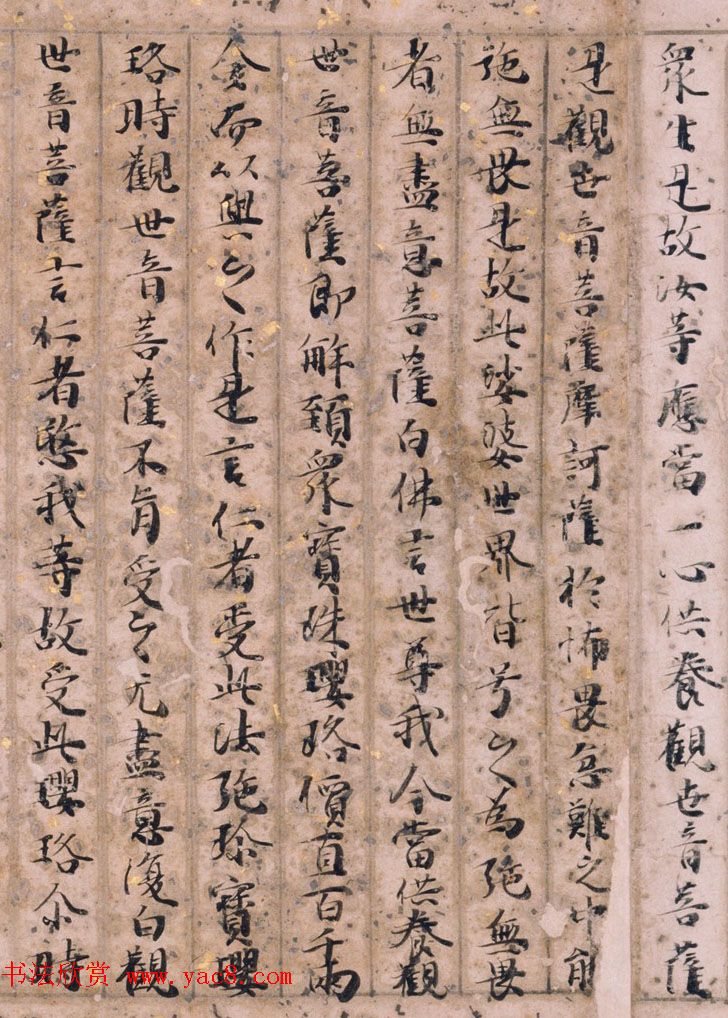 衆生是故汝等應當一心供養觀世音菩薩
是觀世音菩薩摩訶薩於怖畏急難之中能
施無畏是故此娑婆世界皆号之為施無畏
者無盡意菩薩白佛言世尊我今當供養觀
世音菩薩即解頚衆寶珠瓔珞價直百千兩
金而以與之作是言仁者受此法施珎寶瓔
珞時觀世音菩薩不肯受之无盡意復白觀
世音菩薩言仁者愍我等故受此瓔珞尒時
书法欣赏 www.yac8.com